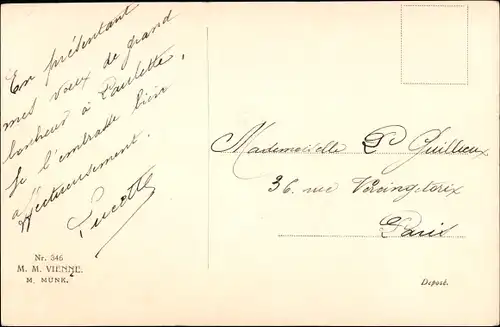 En présentant
mes vœux de grand
bonheur à Paulette,
Je l'embrasse bien
affectueusement.
Nr. 346
M. M. VIENNE.
M. MUNK.
Mademoiselle P. Guillieux
36, rue Vercingétorix
Paris
Depost.